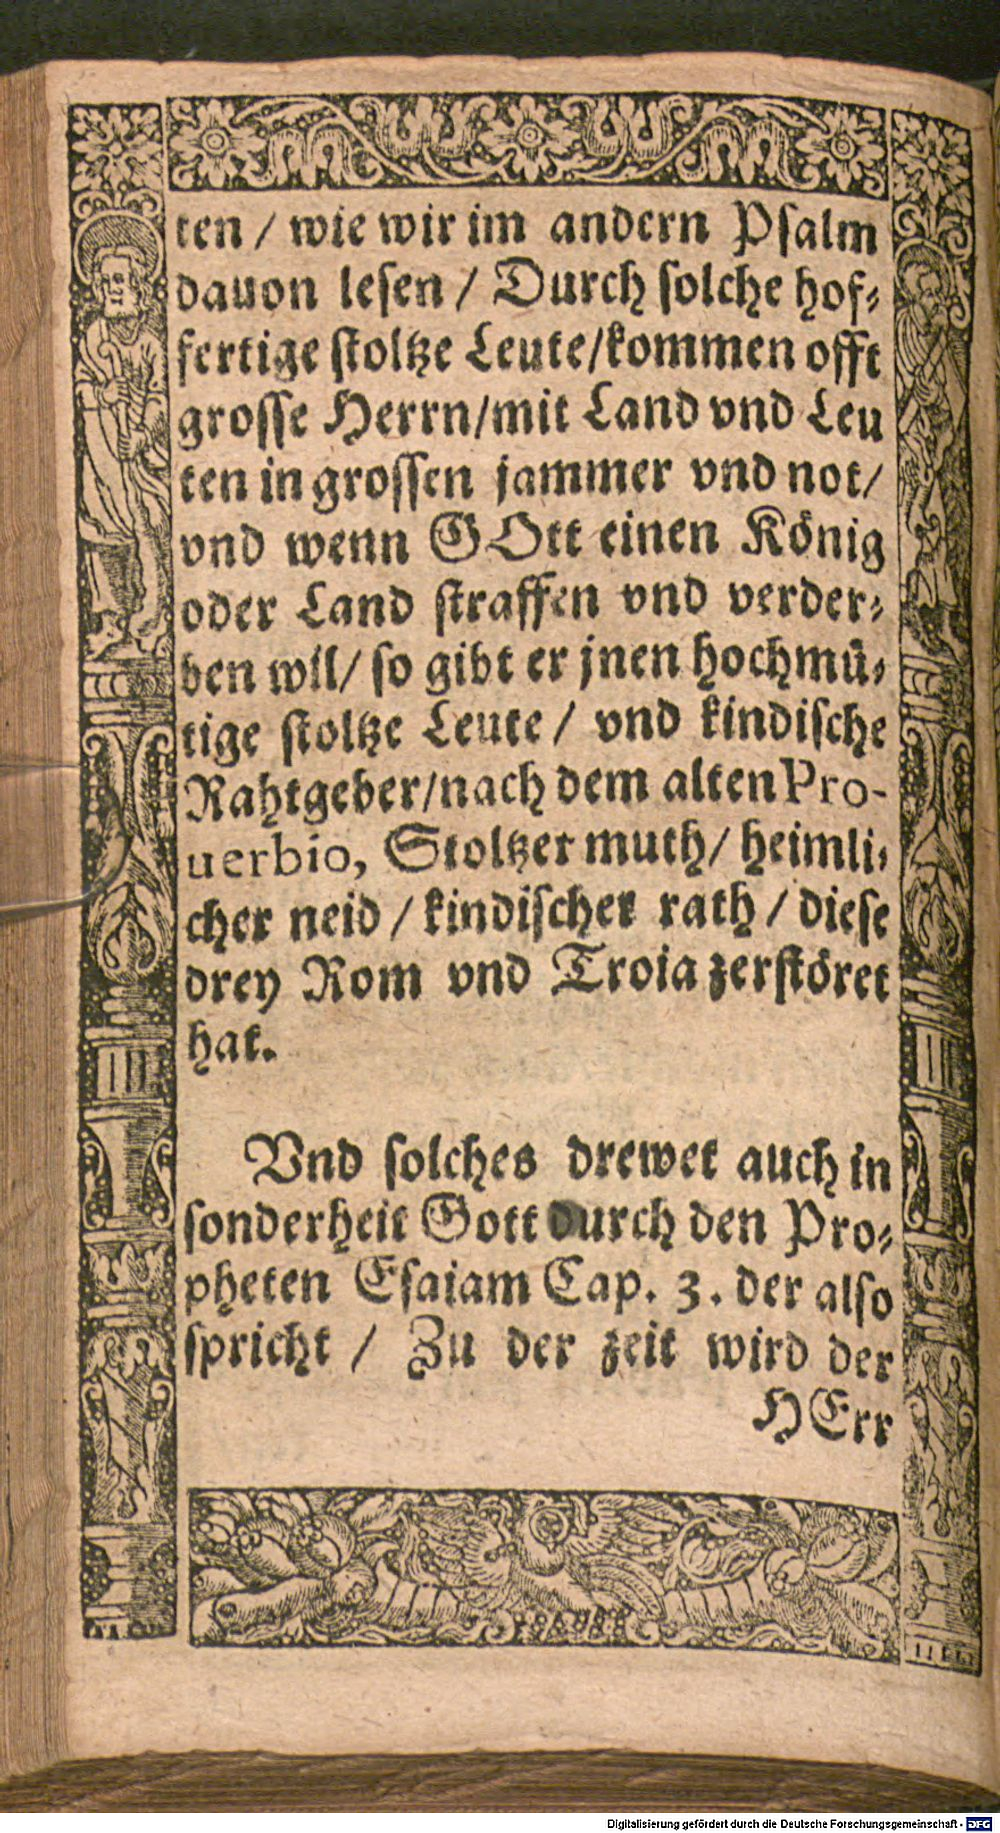 ten / wie wir im andern Psalm
dauon lesen / Durch solche hof-
fertige stoltze Leute/kommen offt
grosse Herrn/mit Land vnd Leu
ten in grossen jammer vnd not/
vnd wenn GOtt einen König
oder Land straffen vnd verder-
ben wil/ so gibt er jnen hochmü-
tige stoltze Leute / vnd kindische
Rahtgeber/nach dem alten Pro-
uerbio, Stoltzer muth/ heimli-
cher neid / kindischer rath / diese
drey Rom vnd Troia zerstöret
hat.
Vnd solches drewet auch in
sonderheit Gott durch den Pro-
pheten Esaiam Cap. 3. der also
spricht / Zu der zeit wird der
HErr
Digitalisierung gefördert durch die Deutsche Forschungsgemeinschaft - DFG